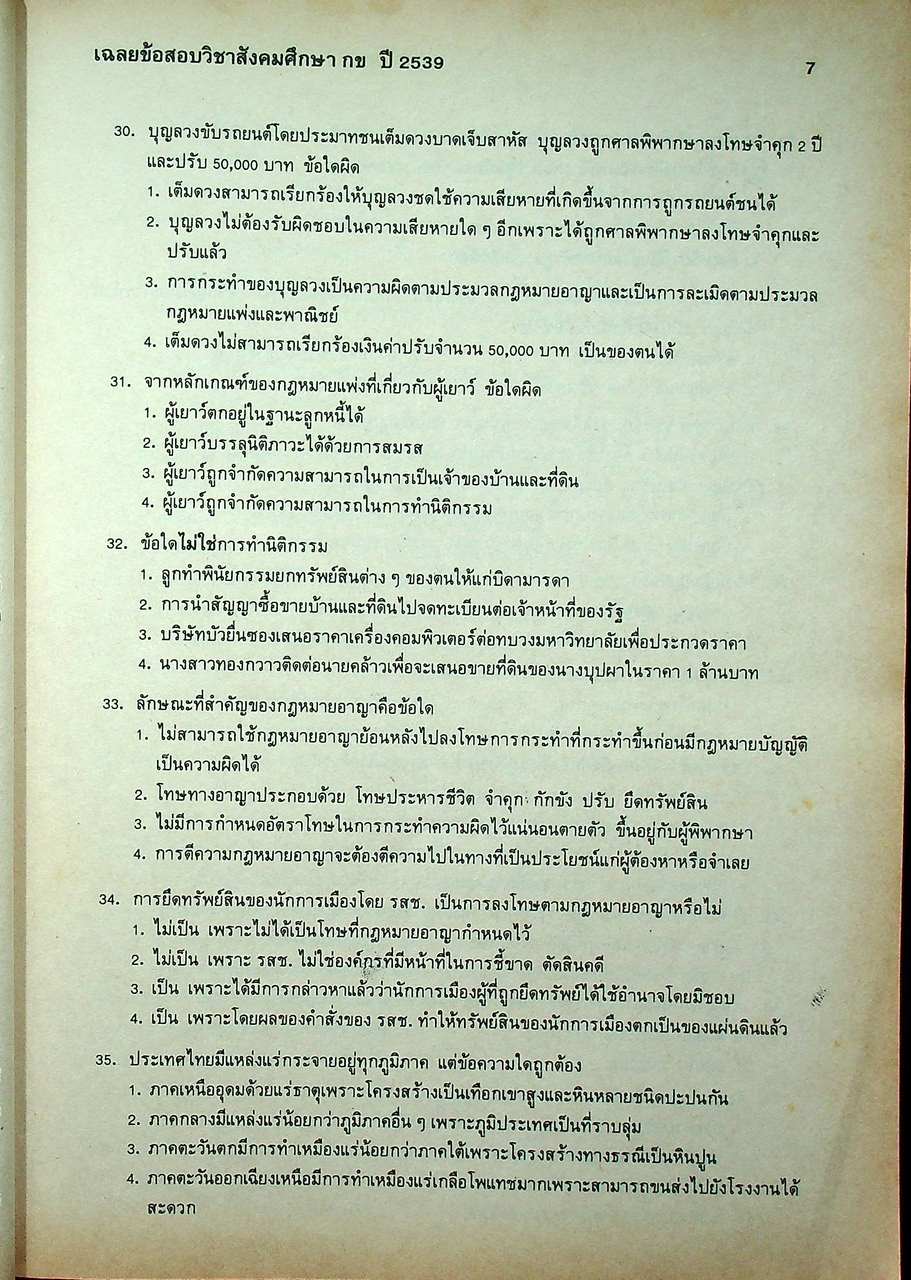 เฉลยข้อสอบวิชาสังคมศึกษา กข ปี 2539
7
30. บุญลวงขับรถยนต์โดยประมาทชนเต็มดวงบาดเจ็บสาหัส บุญลวงถูกศาลพิพากษาลงโทษจำคุก 2 ปี
และปรับ 50,000 บาท ข้อใดผิด
1. เต็มดวงสามารถเรียกร้องให้บุญลวงชดใช้ความเสียหายที่เกิดขึ้นจากการถูกรถยนต์ชนได้
2. บุญลวงไม่ต้องรับผิดชอบในความเสียหายใด ๆ อีกเพราะได้ถูกศาลพิพากษาลงโทษจำคุกและ
ปรับแล้ว
3. การกระทำของบุญลวงเป็นความผิดตามประมวลกฎหมายอาญาและเป็นการละเมิดตามประมวล
กฎหมายแพ่งและพาณิชย์
4. เต็มดวงไม่สามารถเรียกร้องเงินค่าปรับจำนวน 50,000 บาท เป็นของตนได้
31. จากหลักเกณฑ์ของกฎหมายแพ่งที่เกี่ยวกับผู้เยาว์ ข้อใดผิด
1. ผู้เยาว์ตกอยู่ในฐานะลูกหนี้ได้
2. ผู้เยาว์บรรลุนิติภาวะได้ด้วยการสมรส
3. ผู้เยาว์ถูกจำกัดความสามารถในการเป็นเจ้าของบ้านและที่ดิน
4. ผู้เยาว์ถูกจำกัดความสามารถในการทำนิติกรรม
32. ข้อใดไม่ใช่การทำนิติกรรม
1. ลูกทำพินัยกรรมยกทรัพย์สินต่าง ๆ ของตนให้แก่บิดามารดา
2. การนำสัญญาซื้อขายบ้านและที่ดินไปจดทะเบียนต่อเจ้าหน้าที่ของรัฐ
3. บริษัทบัวยื่นซองเสนอราคาเครื่องคอมพิวเตอร์ต่อทบวงมหาวิทยาลัยเพื่อประกวดราคา
4. นางสาวทองกวาวติดต่อนายคล้าวเพื่อจะเสนอขายที่ดินของนางบุปผาในราคา 1 ล้านบาท
33. ลักษณะที่สำคัญของกฎหมายอาญาคือข้อใด
1. ไม่สามารถใช้กฎหมายอาญาย้อนหลังไปลงโทษการกระทำที่กระทำขึ้นก่อนมีกฎหมายบัญญัติ
เป็นความผิดได้
2. โทษทางอาญาประกอบด้วย โทษประหารชีวิต จำคุก กักขัง ปรับ ยึดทรัพย์สิน
3. ไม่มีการกำหนดอัตราโทษในการกระทำความผิดไว้แน่นอนตายตัว ขึ้นอยู่กับผู้พิพากษา
4. การตีความกฎหมายอาญาจะต้องตีความไปในทางที่เป็นประโยชน์แก่ผู้ต้องหาหรือจำเลย
34. การยึดทรัพย์สินของนักการเมืองโดย รสช. เป็นการลงโทษตามกฎหมายอาญาหรือไม่
1. ไม่เป็น เพราะไม่ได้เป็นโทษที่กฎหมายอาญากำหนดไว้
2. ไม่เป็น เพราะ รสช. ไม่ใช่องค์กรที่มีหน้าที่ในการชี้ขาด ตัดสินคดี
3. เป็น เพราะได้มีการกล่าวหาแล้วว่านักการเมืองผู้ที่ถูกยึดทรัพย์ได้ใช้อำนาจโดยมิชอบ
4. เป็น เพราะโดยผลของคำสั่งของ รสช. ทำให้ทรัพย์สินของนักการเมืองตกเป็นของแผ่นดินแล้ว
35. ประเทศไทยมีแหล่งแร่กระจายอยู่ทุกภูมิภาค แต่ข้อความใดถูกต้อง
1. ภาคเหนืออุดมด้วยแร่ธาตุเพราะโครงสร้างเป็นเทือกเขาสูงและหินหลายชนิดปะปนกัน
2. ภาคกลางมีแหล่งแร่น้อยกว่าภูมิภาคอื่น ๆ เพราะภูมิประเทศเป็นที่ราบลุ่ม
3. ภาคตะวันตกมีการทำเหมืองแร่น้อยกว่าภาคใต้เพราะโครงสร้างทางธรณีเป็นหินปูน
4. ภาคตะวันออกเฉียงเหนือมีการทำเหมืองแร่เกลือโพแทชมากเพราะสามารถขนส่งไปยังโรงงานได้
สะดวก